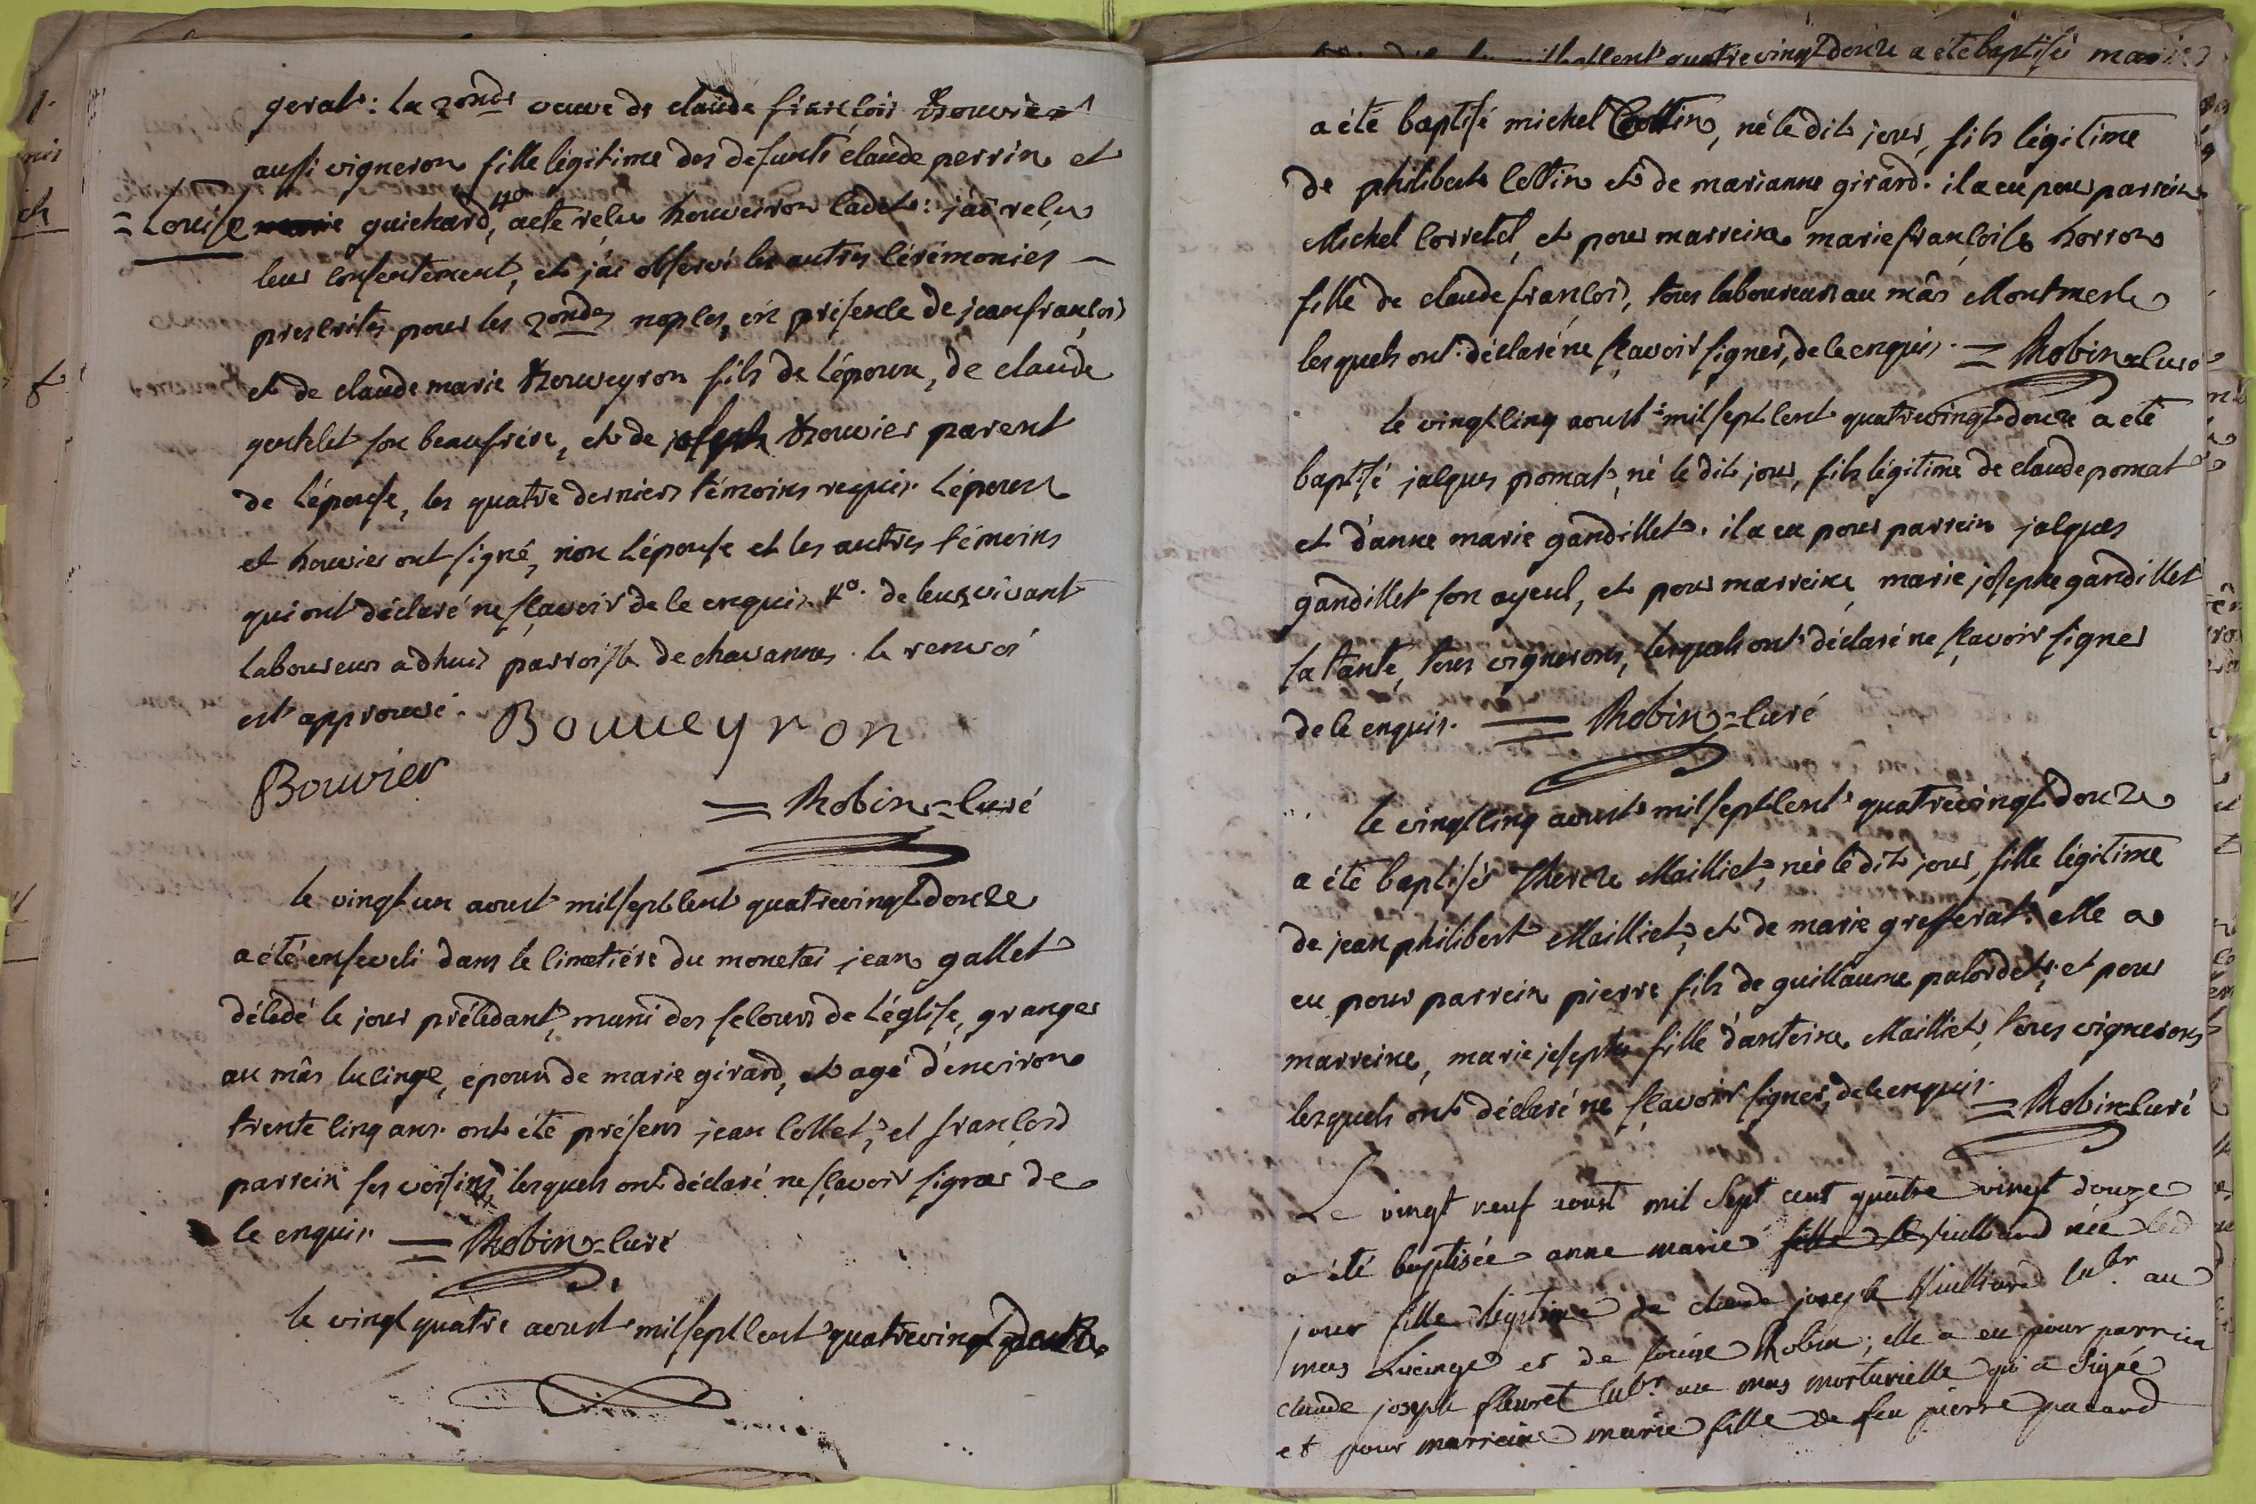 gerat: la 2onde veuve de claude françois Bouvier
aussi vigneron fille légitime des defunts claude perrin et
= Louise guichard, acte relu bouveiron cadet: j'ai reçu
leur consentement, et j'ai observé les autres cérémonies —
prescrites pour les 2ondes nopces, en présence de jean françois
et de claude marie Bouveyron fils de l'époux, de claude
son beaufrère, et de joseph Bouvier parent
de l'épouse, les quatre derniers témoins requis. L'époux
et bouvier ont signé, non l'épouse et les autres témoins
qui ont déclaré ne sçavoir de ce enquis. de leur vivant
laboureur parroisse de chavannes. le renvoi
est approuvé.
Bouueyron
Bouvier
= Robin = curé
le vingt un aoust mil sept cent quatre vingt douze
a été enseveli dans le cimetiére du monetai jean gallet
décédé le jour précédant, muni des secours de L'église, granger
au mâs lucinge, époux de marie girard, et agé d'environ
trente cinq ans. ont été présens jean collet, et françois
parrein ses voisins, lesquels ont déclaré ne sçavoir signer de
ce enquis. = Robin = curé
le vingt quatre aoust mil sept cent quatre vingt douze
mil sept cent quatre vingt douze a été baptisée marie
a été baptisé michel Cottin, né le dit jour, fils légitime
de philibert cottin et de marianne girard. il a eu pour parrein
Michel corretel, et pour marreine marie françoise borron
fille de claude françois, tous laboureurs au mâs Montmerle
lesquels ont déclaré ne sçavoir signer, de ce enquis. = Robin = curé
le vingt cinq aoust mil sept cent quatre vingt douze a été
baptisé jacques pomat, né le dit jour, fils légitime de claude pomat
et d'anne marie gandillet. il a eu pour parrein jacques
gandillet son ayeul, et pour marreine marie josephe gandillet
sa tante, tous vignerons, lesquels ont déclaré ne sçavoir signer
de ce enquis. = Robin = curé
le vingt cinq aoust mil sept cent quatre vingt douze
a été baptisée Thereze Mailliet, née le dit jour, fille légitime
de jean philibert Mailliet, et de marie grefferat. elle a
eu pour parrein pierre fils de guillaume palordet, et pour
marreine, marie josephe fille d'antoine Mailliet, tous vignerons
lesquels ont déclaré ne sçavoir signer, de ce enquis. = Robin = curé
Le vingt neuf aoust mil Sept cent quatre vingt douze
a été baptisée anne marie fille de Vuillard née led
jour fille légitime de claude joseph Vuillard labr au
mas Lucinge et de louise Robin; elle a eu pour parrein
claude joseph fleuret labr au mas morturielle qui a Signé
et pour marreine marie fille de feu pierre pacard